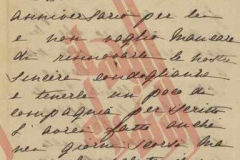 anniversario per lei
e non voglio mancare
di rinnovarle le nostre
sincere condoglianze
e tenerle un poco di
compagnia per scritto
L'avrei fatto anche
nei giorni scorsi ma